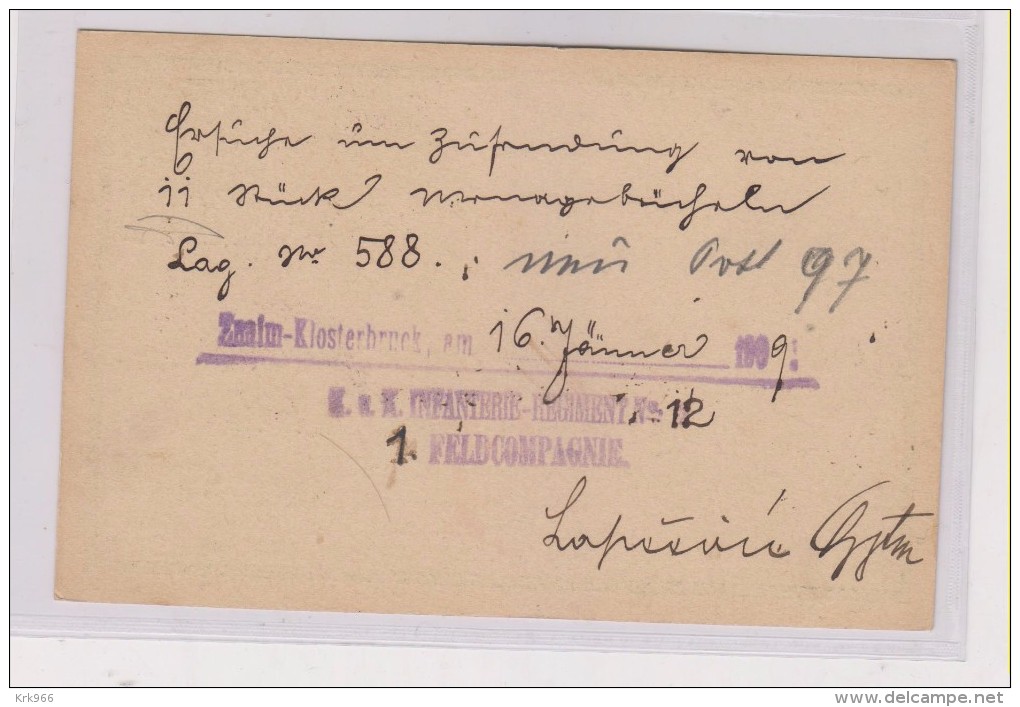 Ersuche um Zusendung von
11 Stück Menagebücheln
Lag. No 588.
Post 97
Znaim-Klosterbruck, am 16. Jänner 1909.
K. u. K. INFANTERIE-REGIMENT No 12
1. FELDCOMPAGNIE.
Krk966
delcampe.net